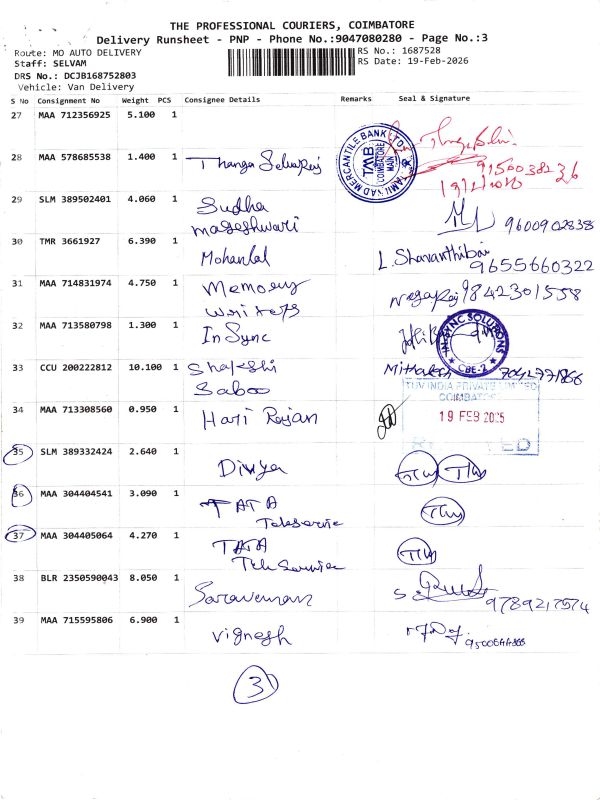 THE PROFESSIONAL COURIERS, COIMBATORE
Delivery Runsheet - PNP - Phone No.:9047080280 - Page No.:3
Route: MO AUTO DELIVERY
Staff: SELVAM
DRS No.: DCJB168752803
Vehicle: Van Delivery
RS No.: 1687528
RS Date: 19-Feb-2026
S No Consignment No Weight PCS Consignee Details Remarks Seal & Signature
27 MAA 712356925 5.100 1
28 MAA 578685538 1.400 1 Thanga Selvaraj
TAMILNAD MERCANTILE BANK LTD
TMB
COIMBATORE
MAIN
9150038236
29 SLM 389502401 4.060 1 Sudha
mageshwari
9600902838
30 TMR 3661927 6.390 1 Mohanlal L. Shavanthibai
9655660322
31 MAA 714831974 4.750 1 Memory
writers
Nagaraj 9842301558
32 MAA 713580798 1.300 1 InSync
INSYNC SOLUTIONS
CBE-2
33 CCU 200222812 10.100 1 Shakshi
Saboo
34 MAA 713308560 0.950 1 Hari Rajan
TUV INDIA PRIVATE LIMITED
COIMBATORE
19 FEB
35 SLM 389332424 2.640 1 Divya
36 MAA 304404541 3.090 1 TATA
Teleservice
37 MAA 304405064 4.270 1 TATA
Tele Service
38 BLR 2350590043 8.050 1 Saravanan
9789217574
39 MAA 715595806 6.900 1 Vignesh
3